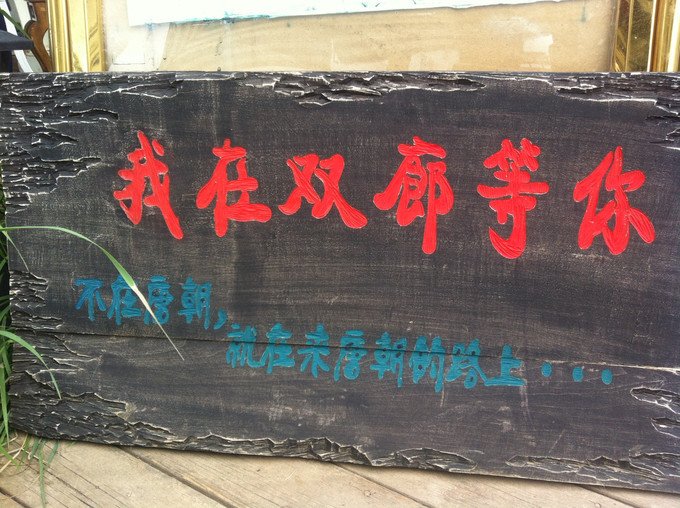 我在双廊等你
不在唐朝,
就在来唐朝的路上···